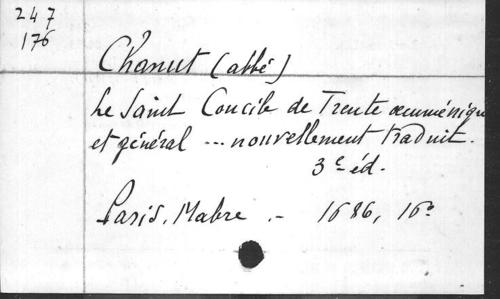 247
176
Chanut (abbé)
Le Saint Concile de Trente œcuménique
et général ... nouvellement traduit.
3e éd.
Paris, Mabre .- 1686, 16°